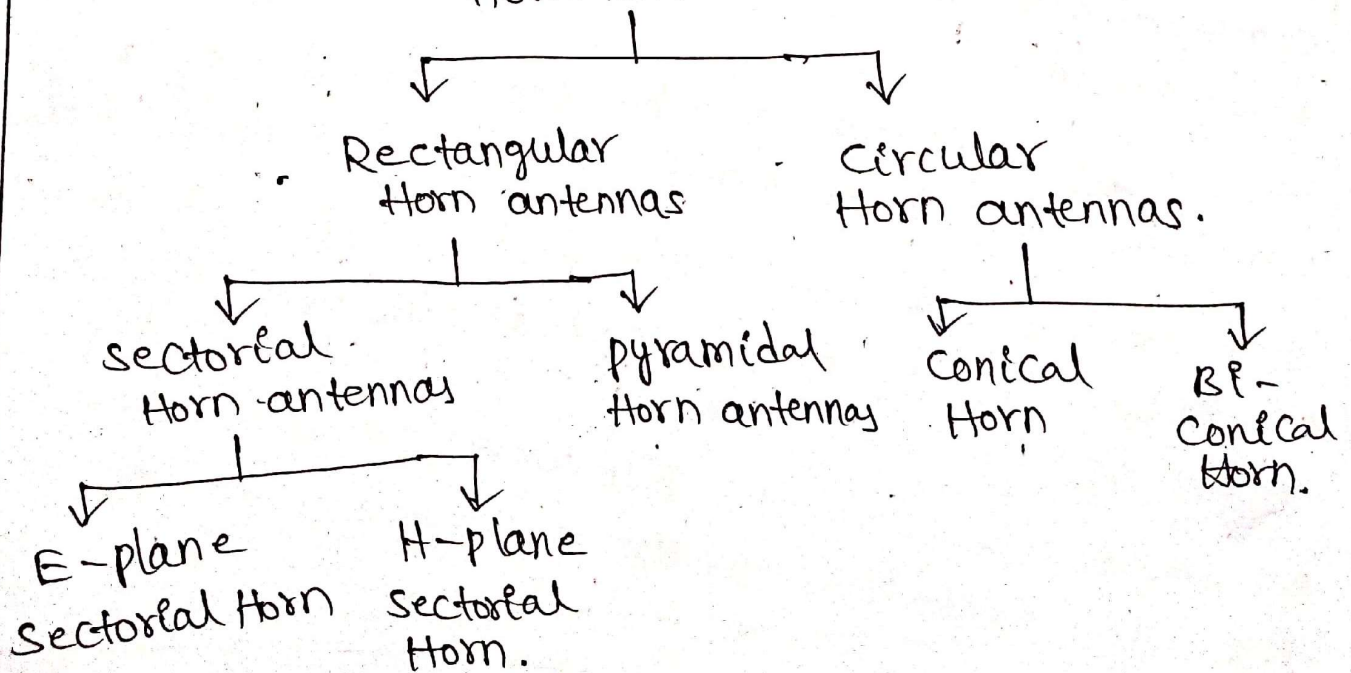 Rectangular
Horn antennas
Circular
Horn antennas.
Sectorial
Horn antennas
Pyramidal
Horn antennas
Conical
Horn
Bi-
Conical
Horn.
E-plane
Sectorial Horn
H-plane
Sectorial
Horn.